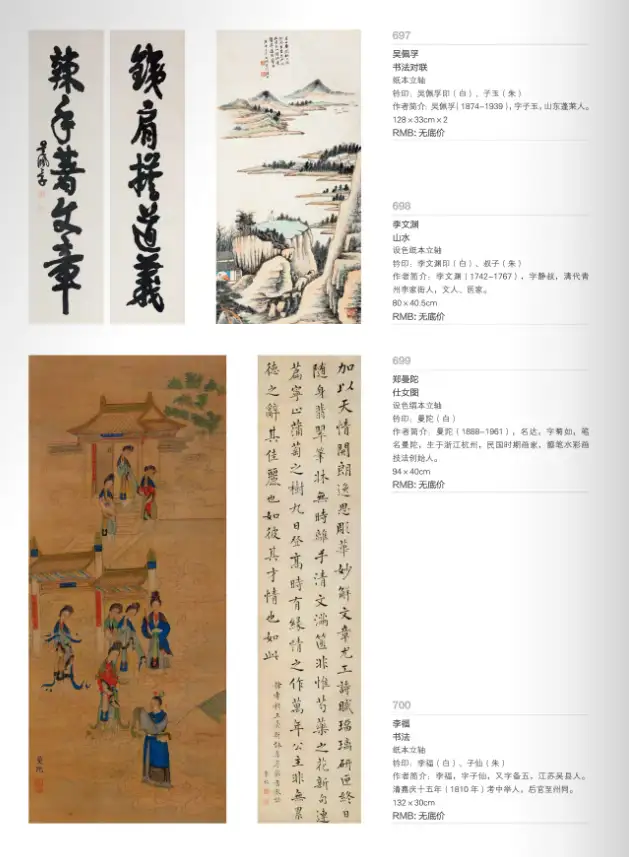 697
吴佩孚
书法对联
纸本立轴
钤印：吴佩孚印（白）、子玉（朱）
作者简介：吴佩孚（1874-1939），字子玉，山东蓬莱人。
128×33cm×2
RMB: 无底价
698
李文渊
山水
设色纸本立轴
钤印：李文渊印（白）、叔子（朱）
作者简介：李文渊（1742-1767），字静叔，清代青
州李家街人，文人、医家。
80×40.5cm
RMB: 无底价
699
郑曼陀
仕女图
设色绢本立轴
钤印：曼陀（白）
作者简介：曼陀（1888-1961），名达，字菊如，笔
名曼陀，生于浙江杭州，民国时期画家，擦笔水彩画
技法创始人。
94×40cm
RMB: 无底价
700
李福
书法
纸本立轴
钤印：李福（白）、子仙（朱）
作者简介：李福，字子仙，又字备五，江苏吴县人。
清嘉庆十五年（1810年）考中举人，后官至州同。
132×30cm
RMB: 无底价
鐵肩擔道義
辣手著文章
吳佩孚
曼陀
加以天情開朗逸思彫華妙解文章尤工詩賦瑠璃研匣終日
隨身翡翠筆牀無時離手清文滿篋非惟芍藥之花新句連
篇寧止蒲萄之樹九日登高時有緣情之作萬年公主非無累
德之辭其佳麗也如彼其才情也如此